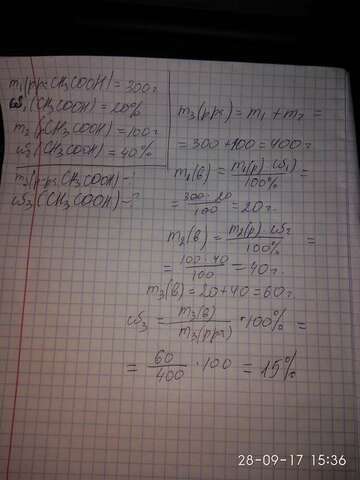 m₁(р-р CH₃COOH) = 300 г
ω₁(CH₃COOH) = 20%
m₂(CH₃COOH) = 100 г
ω₂(CH₃COOH) = 40%
m₃(р-р CH₃COOH) -
ω₃(CH₃COOH) - ?
m₃(рр) = m₁ + m₂ =
= 300 + 100 = 400 г
m₁(в) = m₁(р) · ω₁ / 100% =
= 300 · 20 / 100 = 20 г.
m₂(в) = m₂(р) · ω₂ / 100% =
= 100 · 40 / 100 = 40 г.
m₃(в) = 20 + 40 = 60 г
ω₃ = m₃(в) / m₃(рр) · 100% =
= 60 / 400 · 100 = 15%
28-09-17 15:36